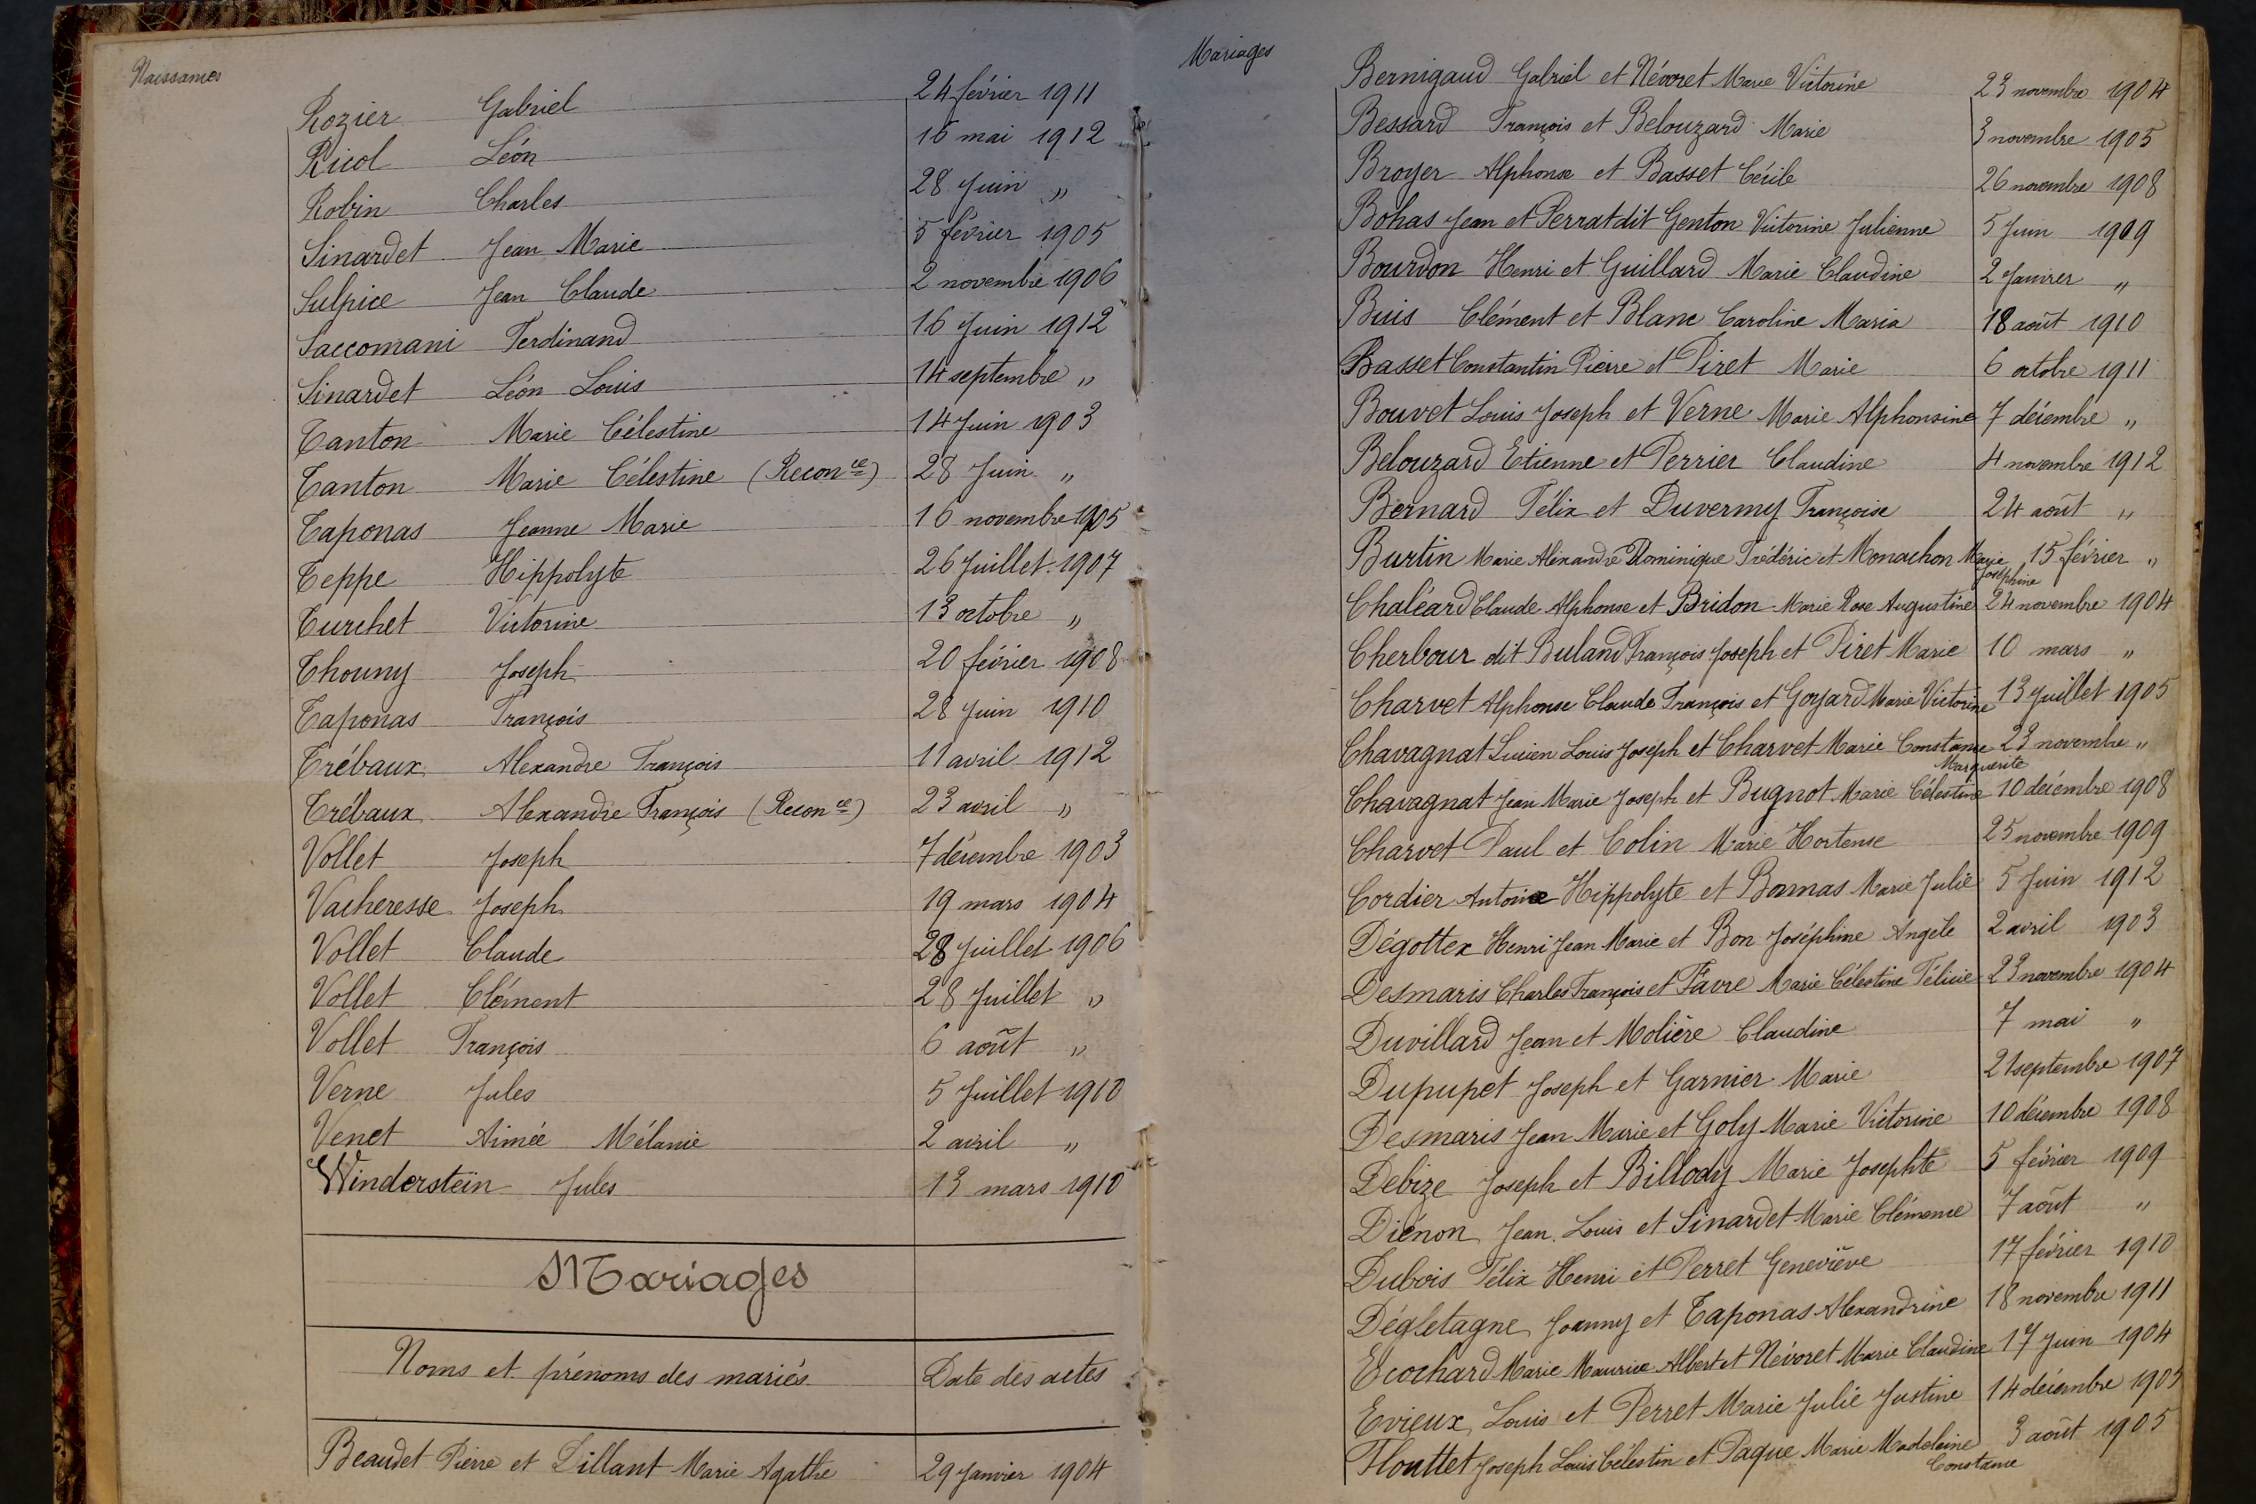 Naissances
Rozier Gabriel 24 février 1911
Ricol Léon 16 mai 1912
Robin Charles 28 Juin "
Sinardet Jean Marie 5 février 1905
Sulpice Jean Claude 2 novembre 1906
Saccomani Ferdinand 16 Juin 1912
Sinardet Léon Louis 14 septembre "
Tanton Marie Célestine 14 Juin 1903
Tanton Marie Célestine (Reconce) 28 Juin "
Taponas Jeanne Marie 16 novembre 1905
Teppe Hippolyte 26 Juillet 1907
Turchet Victorine 13 octobre "
Thouny Joseph 20 février 1908
Taponas François 28 Juin 1910
Trébaux Alexandre François 11 avril 1912
Trébaux Alexandre François (Reconce) 23 avril "
Vollet Joseph 7 décembre 1903
Vacheresse Joseph 19 mars 1904
Vollet Claude 28 Juillet 1906
Vollet Clément 28 Juillet "
Vollet François 6 août "
Verne Jules 5 Juillet 1910
Venet Aimée Mélanie 2 avril "
Winderstein Jules 13 mars 1910
Mariages
Noms et prénoms des mariés Date des actes
Beaudet Pierre et Dillant Marie Agathe 29 Janvier 1904
Mariages
Bernigaud Gabriel et Névoret Marie Victorine 23 novembre 1904
Bessard François et Belouzard Marie 3 novembre 1905
Broyer Alphonse et Basset Cécile 26 novembre 1908
Bohas Jean et Perrat dit Genton Victorine Julienne 5 Juin 1909
Bourdon Henri et Guillard Marie Claudine 2 Janvier "
Buis Clément et Blanc Caroline Maria 18 août 1910
Basset Constantin Pierre et Piret Marie 6 octobre 1911
Bouvet Louis Joseph et Verne Marie Alphonsine 7 décembre "
Belouzard Etienne et Perrier Claudine 4 novembre 1912
Bernard Félix et Duvermy Françoise 24 août "
Burtin Marie Alexandre Dominique Frédéric et Monachon Marie 15 février "
Joséphine
Chaléard Claude Alphonse et Bridon Marie Rose Augustine 24 novembre 1904
Cherbour dit Buland François Joseph et Piret Marie 10 mars "
Charvet Alphonse Claude François et Goyard Marie Victorine 13 Juillet 1905
Chavagnat Lucien Louis Joseph et Charvet Marie Constance 23 novembre "
Marguerite
Chavagnat Jean Marie Joseph et Bugnot Marie Célestine 10 décembre 1908
Charvet Paul et Colin Marie Hortense 25 novembre 1909
Cordier Antoine Hippolyte et Bonnas Marie Julie 5 Juin 1912
Dégottex Henri Jean Marie et Bon Joséphine Angèle 2 avril 1903
Desmaris Charles François et Favre Marie Célestine Félicie 23 novembre 1904
Duvillard Jean et Molière Claudine 7 mai "
Dupupet Joseph et Garnier Marie 21 septembre 1907
Desmaris Jean Marie et Goly Marie Victorine 10 décembre 1908
Debize Joseph et Billody Marie Josephte 5 février 1909
Diénon Jean Louis et Sinardet Marie Clémence 7 août "
Dubois Félix Henri et Perret Geneviève 17 février 1910
Dégletagne Joanny et Taponas Alexandrine 18 novembre 1911
Ecochard Marie Maurice Albert et Névoret Marie Claudine 17 Juin 1904
Evieux Louis et Perret Marie Julie Justine 14 décembre 1905
Flouttet Joseph Louis Célestin et Paque Marie Madeleine 3 août 1905
Constance